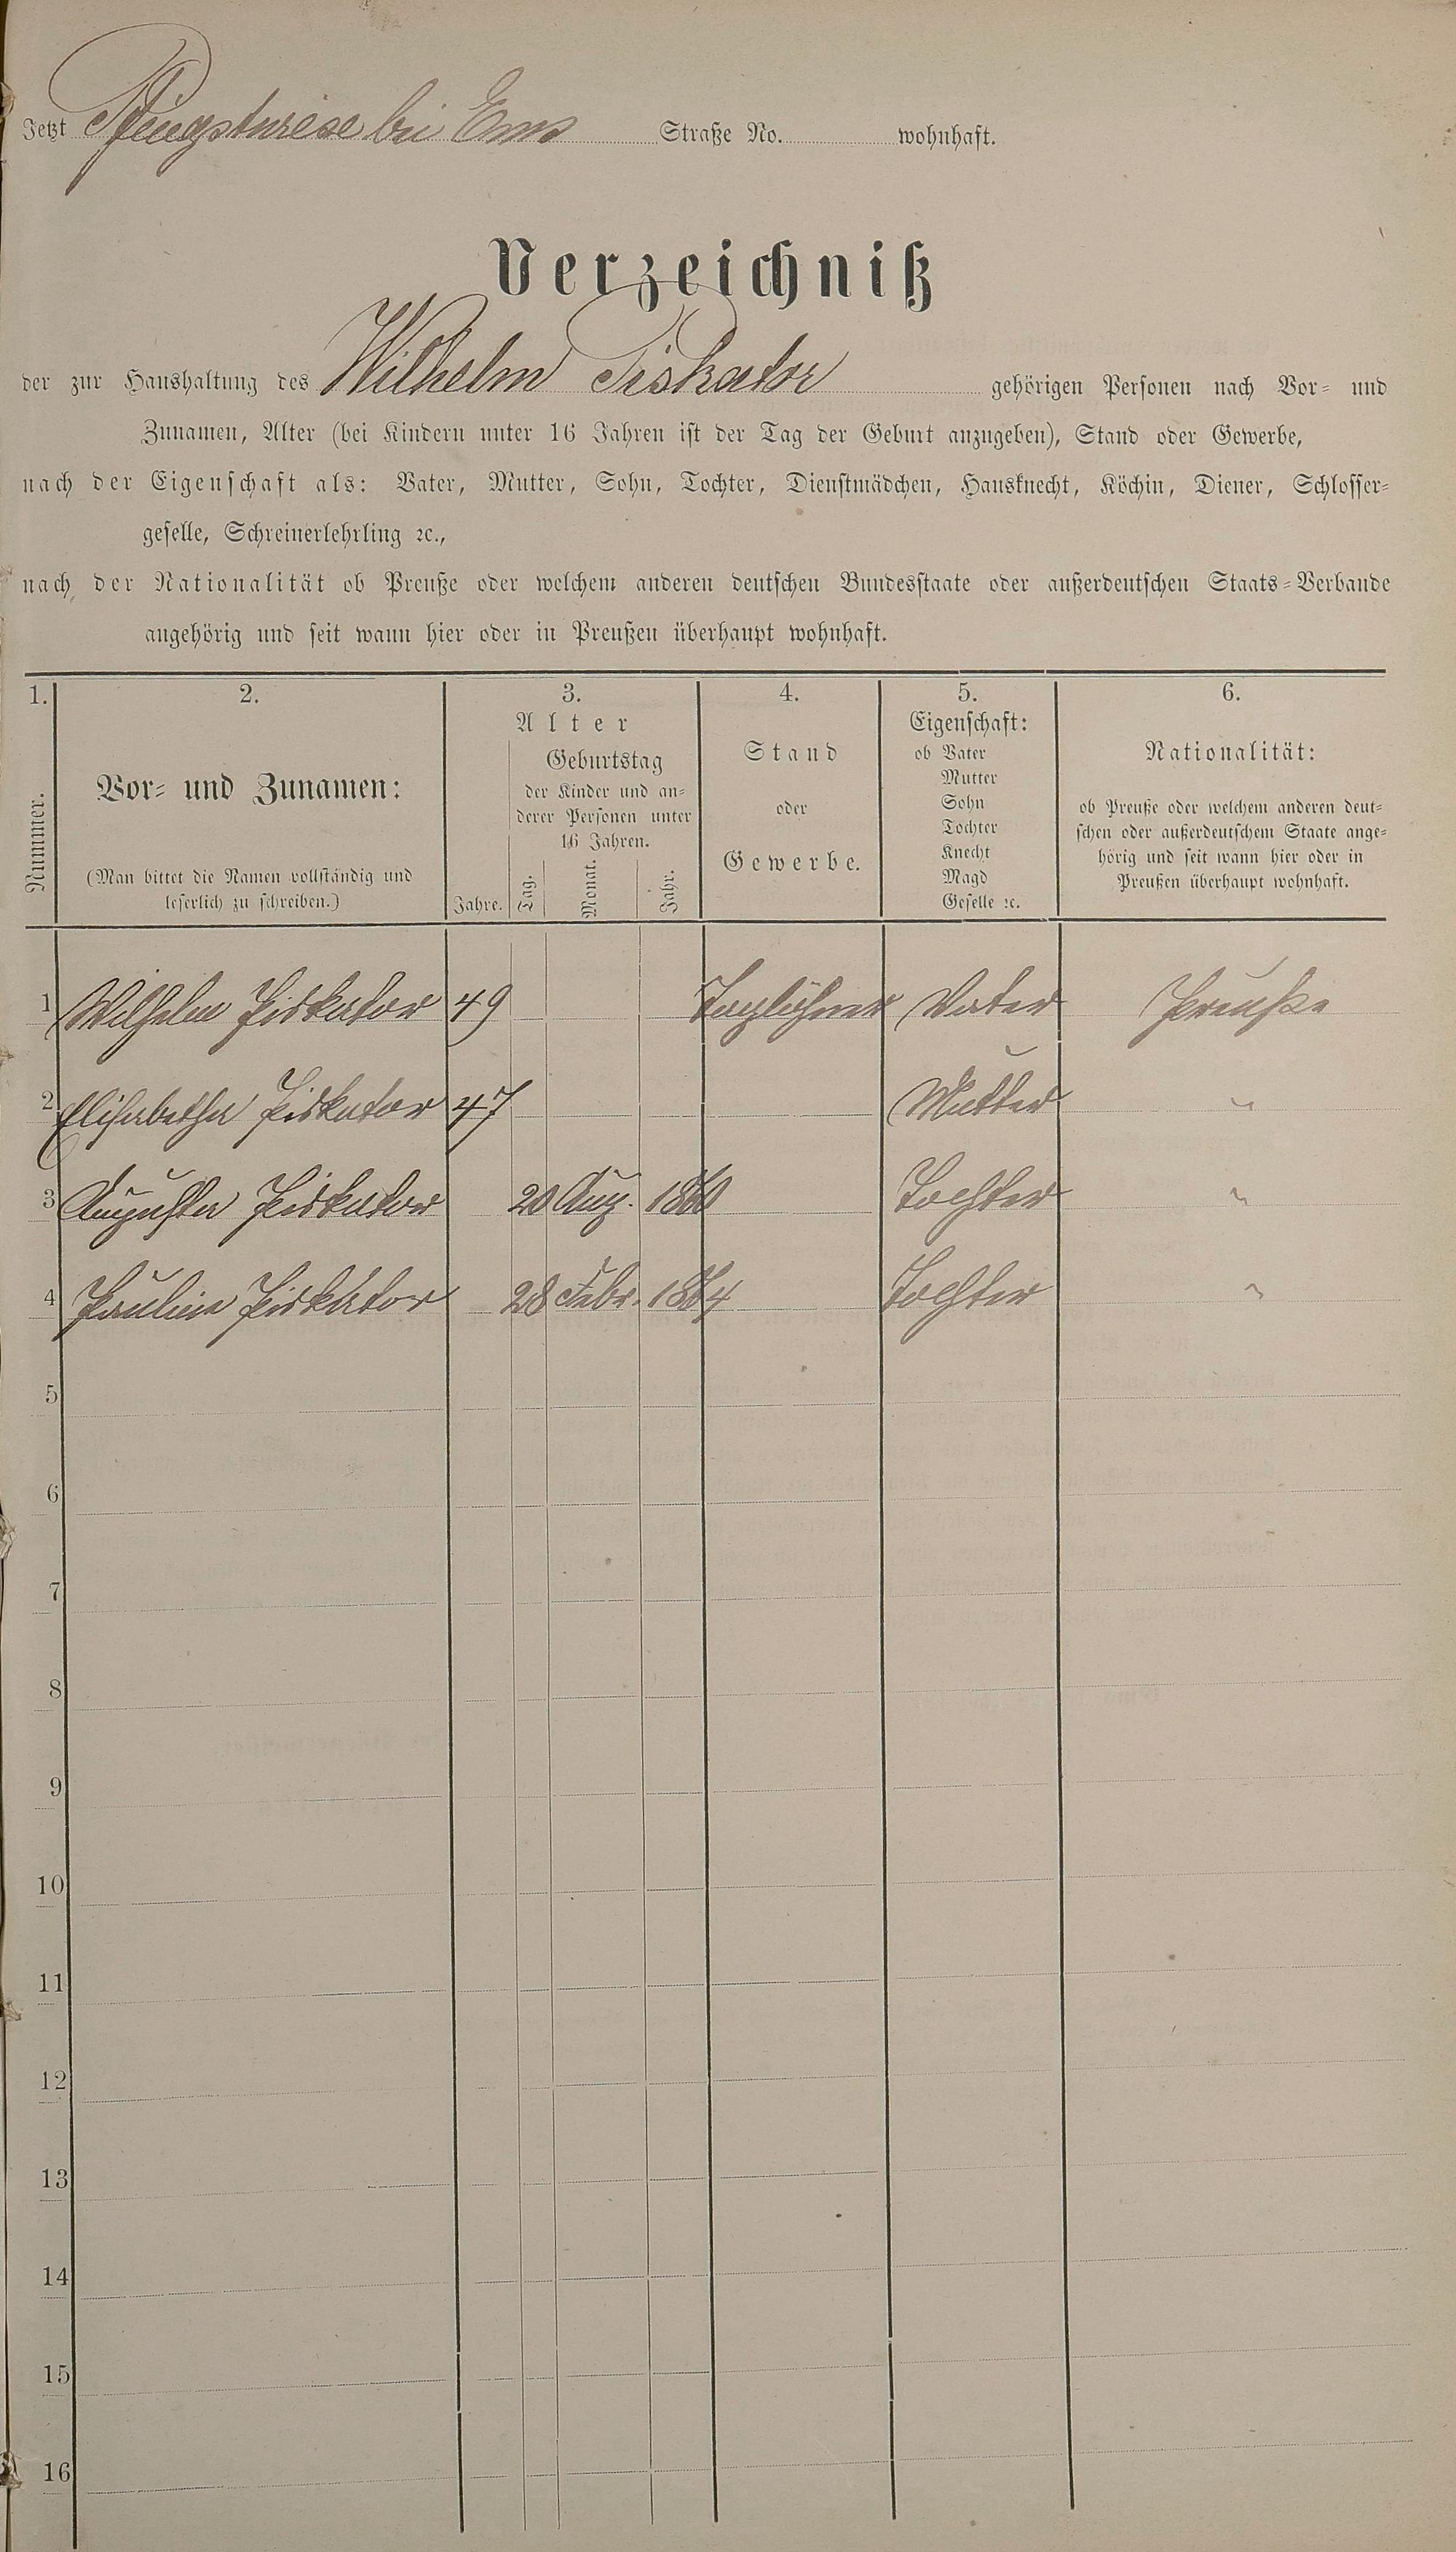 Jetzt Pfingstwiese bei Ems Straße No. wohnhaft.
Verzeichniß
der zur Haushaltung des Wilhelm Piskator gehörigen Personen nach Vor- und
Zunamen, Alter (bei Kindern unter 16 Jahren ist der Tag der Geburt anzugeben), Stand oder Gewerbe,
nach der Eigenschaft als: Vater, Mutter, Sohn, Tochter, Dienstmädchen, Hausknecht, Köchin, Diener, Schlosser-
geselle, Schreinerlehrling ꝛc.,
nach der Nationalität ob Preuße oder welchem anderen deutschen Bundesstaate oder außerdeutschen Staats-Verbande
angehörig und seit wann hier oder in Preußen überhaupt wohnhaft.
1. 2. 3. 4. 5. 6.
Nummer.
Vor- und Zunamen:
(Man bittet die Namen vollständig und
leserlich zu schreiben.)
Alter
Jahre.
Geburtstag
der Kinder und an-
derer Personen unter
16 Jahren.
Tag. Monat. Jahr.
Stand
oder
Gewerbe.
Eigenschaft:
ob Vater
Mutter
Sohn
Tochter
Knecht
Magd
Geselle ꝛc.
Nationalität:
ob Preuße oder welchem anderen deut-
schen oder außerdeutschem Staate ange-
hörig und seit wann hier oder in
Preußen überhaupt wohnhaft.
1 Wilhelm Piskator 49 Taglöhner Vater Preuße
2 Elisabetha Piskator 47 Mutter "
3 Augusta Piskator 20 Aug. 1860 Tochter "
4 Pauline Piskator 28 Febr. 1864 Tochter "
5
6
7
8
9
10
11
12
13
14
15
16